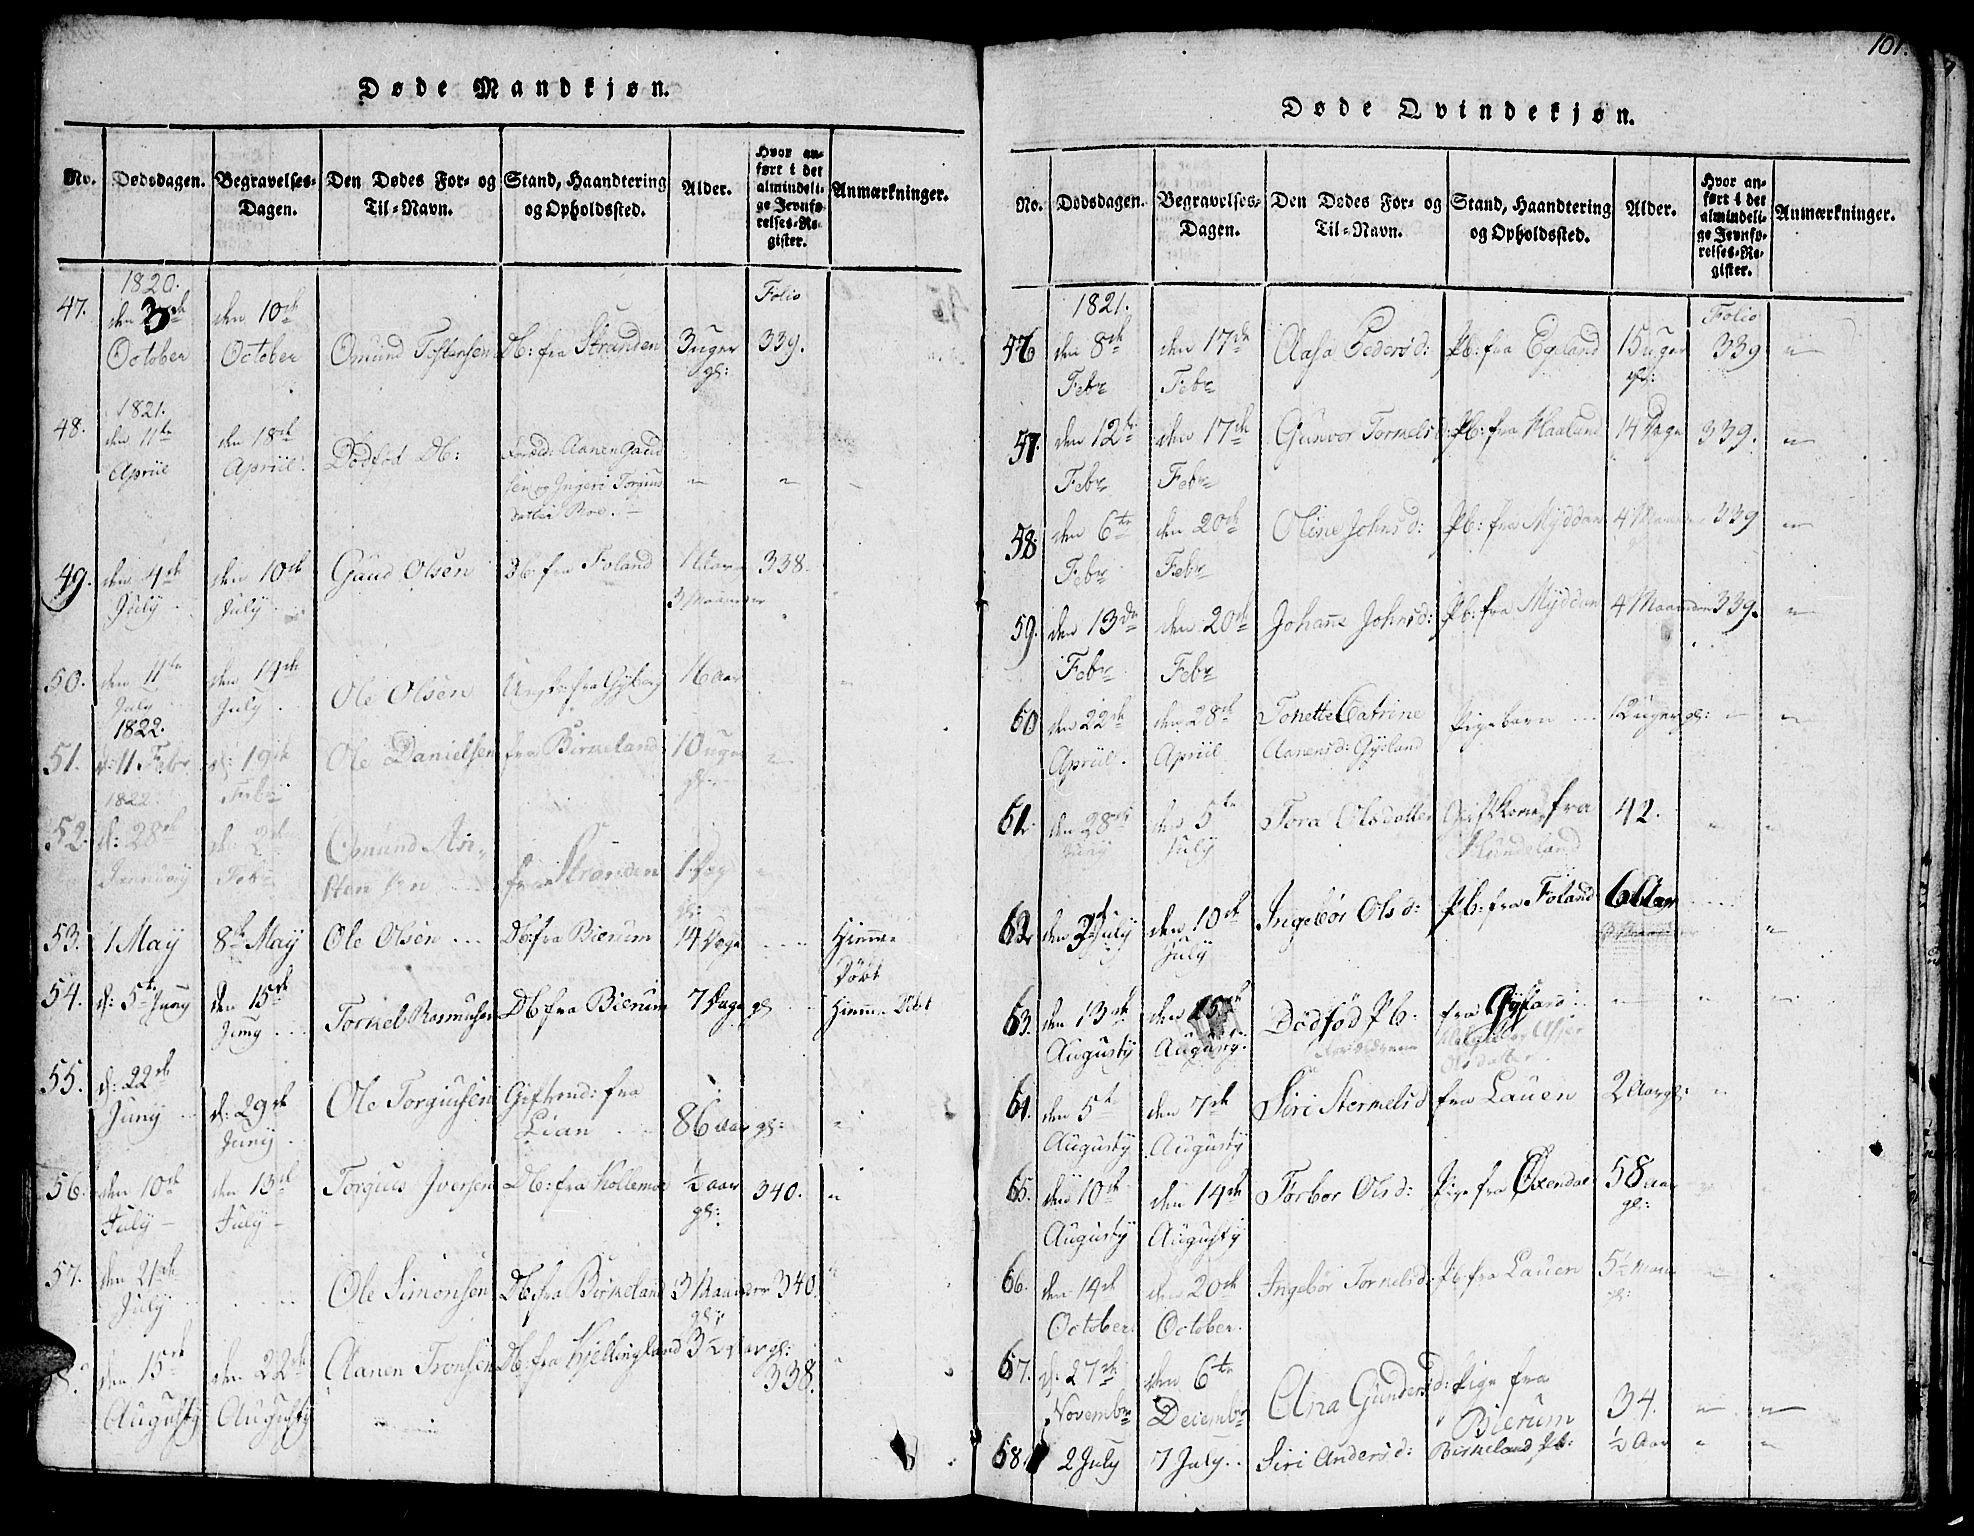 101.
Døde Mandkjøn.
No. Dødsdagen. Begravelses-Dagen. Den Dødes For- og Til-Navn. Stand, Haandtering og Opholdssted. Alder. Hvor anført i det almindelige Jevnførelses-Register. Anmærkninger.
1820. Folio
47. den 3de October den 10de October Omund Tostensen Db: fra Stranden 3 uger gl: 339.
1821.
48. den 11te Apriil den 18de Apriil Dødfød Db: Foræld: Aanen Gaud
sen og Ingeri Torgius
datter Roe. " "
49. den 4de July den 10de July Gaud Olsen Db: fra Foland 1 Aar 3 Maaneder 338.
50. den 11te July den 14de July Ole Olsen fra Gyberg 16 aar "
1822.
51. d: 11 Febr d: 19de Febr Ole Danielsen fra Birkeland 10 uger gl: "
1822.
52. d: 28de Januarij d: 2de Febr Omund fra Stranden 1 Dag gl:
53. 1 Maÿ 8de Maÿ Ole Olsen Db: fra Bierum 14 Dage Hjemme Døbt
54. d: 5te Juny den 15de Juny Torkel Rasmusen Db: fra Bierum 7 Dage gl Hjemme Døbt
55. d: 22de Juny d: 29de Juny Ole Torgiusen Giftmd: fra
Lian 86 aar gl: "
56. den 10de July den 13de July Torgius Iversen Db: fra Kollemoe ½ aar gl: 340. "
57. den 21de July Ole Simonsen Db: fra Birkeland 3 Maaneder gl: 340. "
den 15de Augusty den 22de Augusty Aanen Tronsen Db: fra Kjellingland 3½ Aar gl: 338. "
Døde Qvindekjøn.
No. Dødsdagen. Begravelses-Dagen. Den Dødes For- og Til-Navn. Stand, Haandtering og Opholdssted. Alder. Hvor anført i det almindelige Jevnførelses-Register. Anmærkninger.
1821. Folio
56 den 8de Febr den 17de Febr Aasa Pedersd: Pb: fra Egeland 15 uger gl: 339 "
57. den 12te Febr den 17de Febr Gunvor Tormelsd: Pb: fra Haaland 14 Dage 339. "
58. den 6te Febr den 20de Febr Oline Johnsd: Pb: fra Myddan 4 Maaneder 339 "
59. den 13de Febr den 20de Febr Johanne Johnsd: Pb: fra Myddan 4 Maaneder 339. "
60 den 22de Apriil. den 28de Apriil Tonette Catrine
Aanensd: Gyeland Pigebarn 12 uger gl: " "
61. den 28de Juny den 5te July Tora Olsdatter Giftkone fra
Hundeland 42. " "
62. den 3d July den 10de July Ingebor Olsd: Pb: fra Foland 6 Aar "
63. den 13de Augusty den 15de Augusty. Dødfød Pb: fra Gyland " " "
Forældrene
Olsdatter
64. den 5te Augusty den 7de Augusty Siri Stermelsd fra Lauen 2 Aar gl: "
65. den 10de Augusty den 14de Augusty Torbor Olsd: Pige fra Øxendal 58 aar gl:
66. den 14de October. den 20de October. Ingebor Tormelsd: Pb fra Lauen 5½ Maan gl: "
67. d: 27de Novembr den 6te Decembr Ana Gundersd: Pige fra
Bierum 34. " "
68. 2 July 7 July Siri Andersd: Birkeland Pb: ½ Aar " "